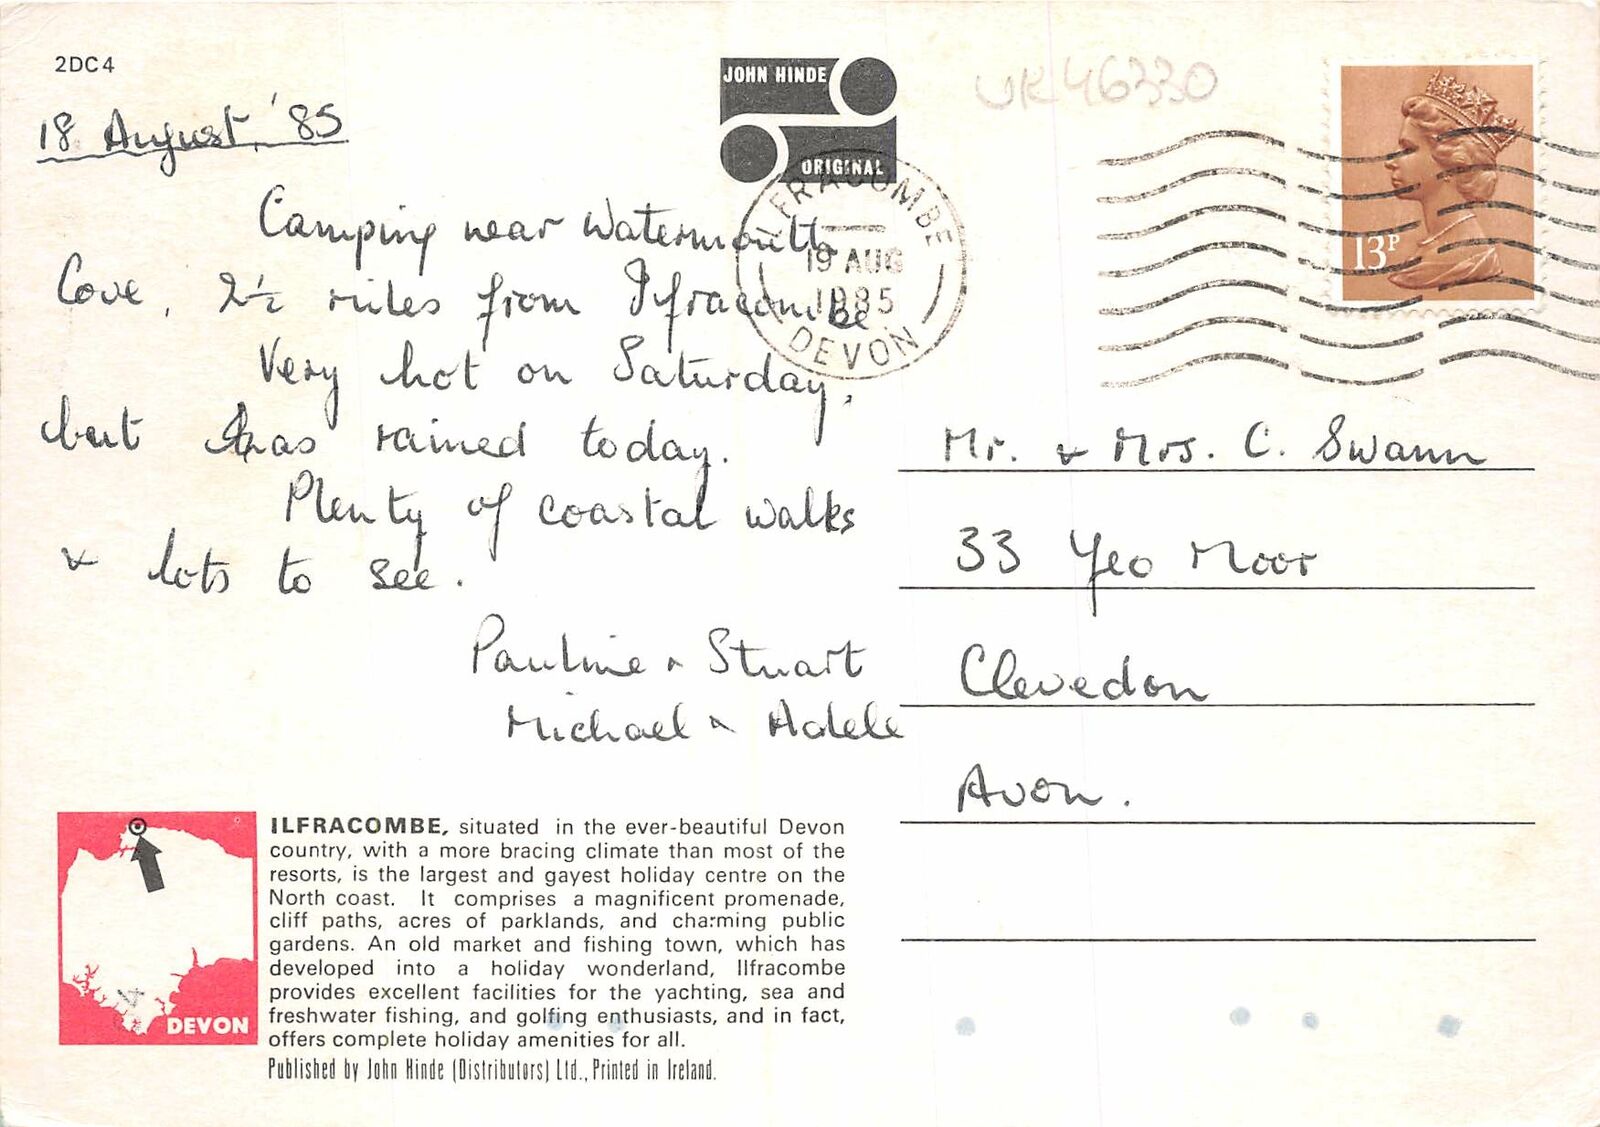 2DC4
JOHN HINDE
ORIGINAL
UK46330
13P
ILFRACOMBE
19 AUG
1985
DEVON
18 August, '85
Camping near Watermouth
Cove, 2½ miles from Ilfracombe
Very hot on Saturday,
but has rained today.
Plenty of coastal walks
& lots to see.
Pauline & Stuart
Michael & Adele
Mr. & Mrs. C. Swann
33 Yeo Moor
Clevedon
Avon.
DEVON
4
ILFRACOMBE, situated in the ever-beautiful Devon
country, with a more bracing climate than most of the
resorts, is the largest and gayest holiday centre on the
North coast. It comprises a magnificent promenade,
cliff paths, acres of parklands, and charming public
gardens. An old market and fishing town, which has
developed into a holiday wonderland, Ilfracombe
provides excellent facilities for the yachting, sea and
freshwater fishing, and golfing enthusiasts, and in fact,
offers complete holiday amenities for all.
Published by John Hinde (Distributors) Ltd., Printed in Ireland.